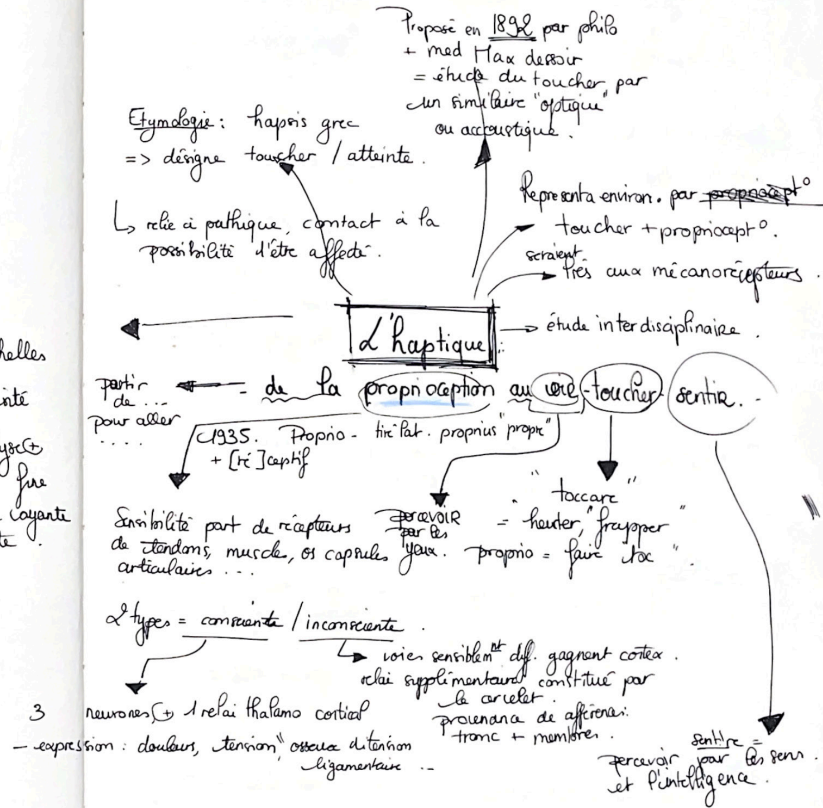 Proposé en 1892 par philo
+ med Max dessoir
= étude du toucher par
un similaire "optique"
ou accoustique.
Etymologie : hapsis grec
=> désigne toucher / atteinte.
↳ relie à pathique, contact à la
possibilité d'être affecté.
Representa environ. par propriocept°
toucher + propriocept°.
seraient
liés aux mécanorécepteurs.
L'haptique
étude interdisciplinaire.
de la proprioception au voir-toucher sentir.
partir
de ...
pour aller
....
1935. Proprio- tiré lat. proprius "propre"
+ [ré]ceptif
Sensibilité part de récepteurs
de tendons, muscle, os capsules
articulaires ...
percevoir
par les
yeux.
"toccare"
= heurter, "frapper"
proprio = "faire toc".
2 types = consciente / inconsciente.
↳ voies sensiblemnt diff. gagnent cortex.
relai supplémentaire constitué par
le cervelet.
provenance de afférences:
tronc + membres.
3 neurones (+ 1 relai thalamo cortical
- expression : douleurs, "tension" osseux distension
ligamentaire ...
sentire =
percevoir par les sens.
et l'intelligence.
helles
fine